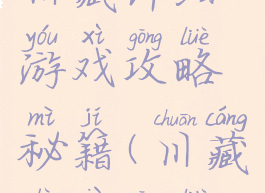 yóu xì gōng lüè
游戏攻略
mì jí chuān cáng
秘籍(川藏